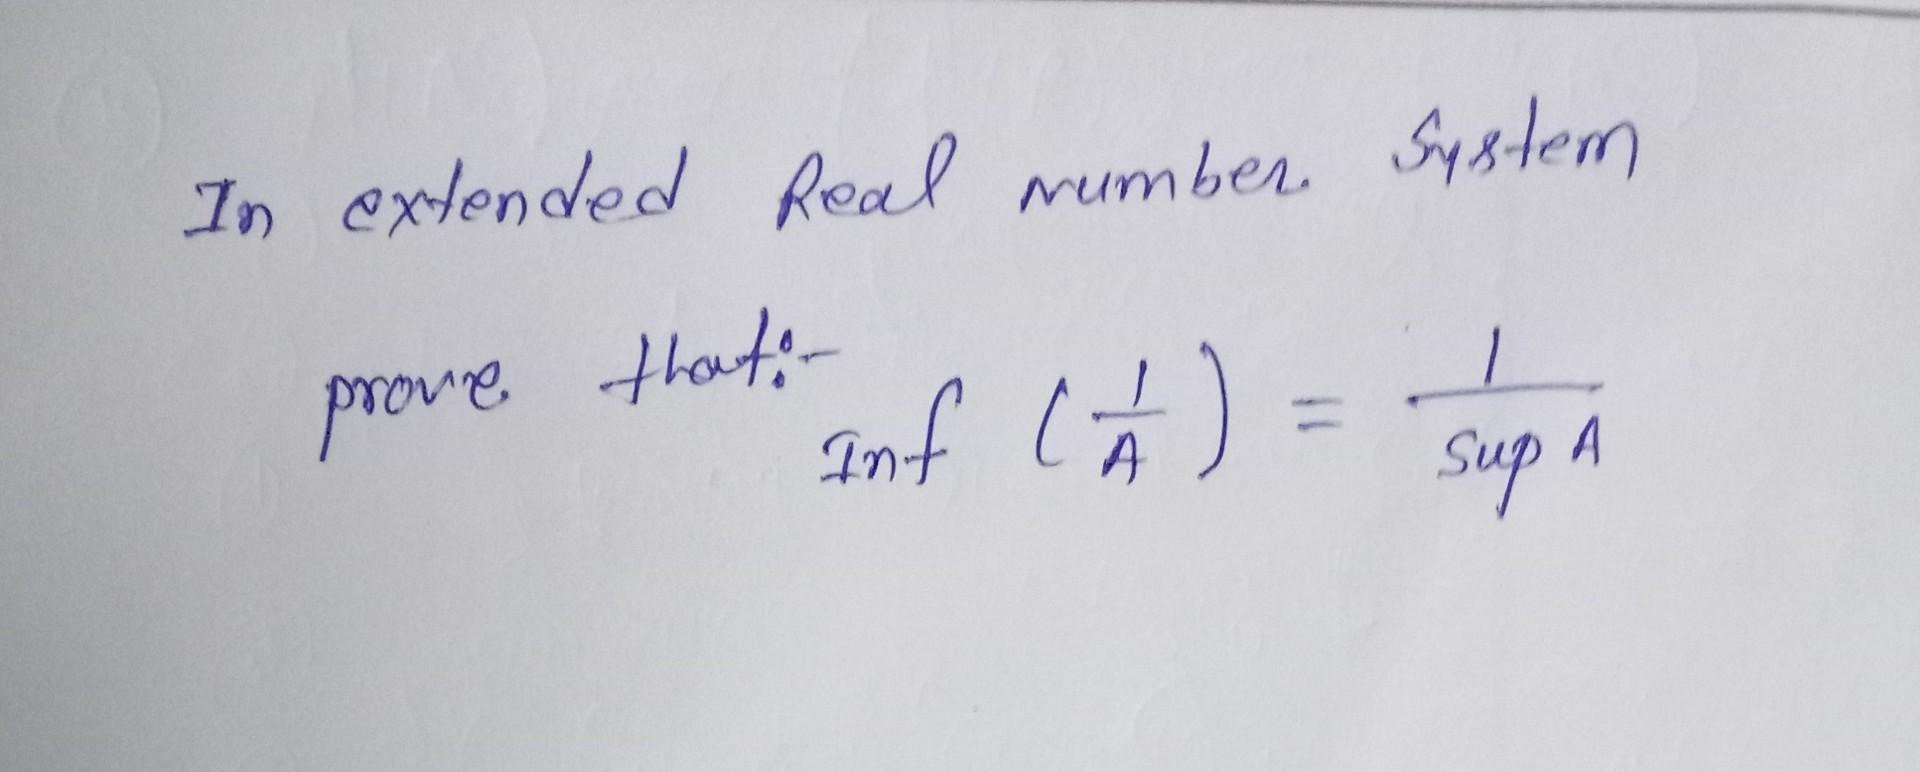 In extended Real number System
prove that:-
Inf (1/A) = 1/Sup A